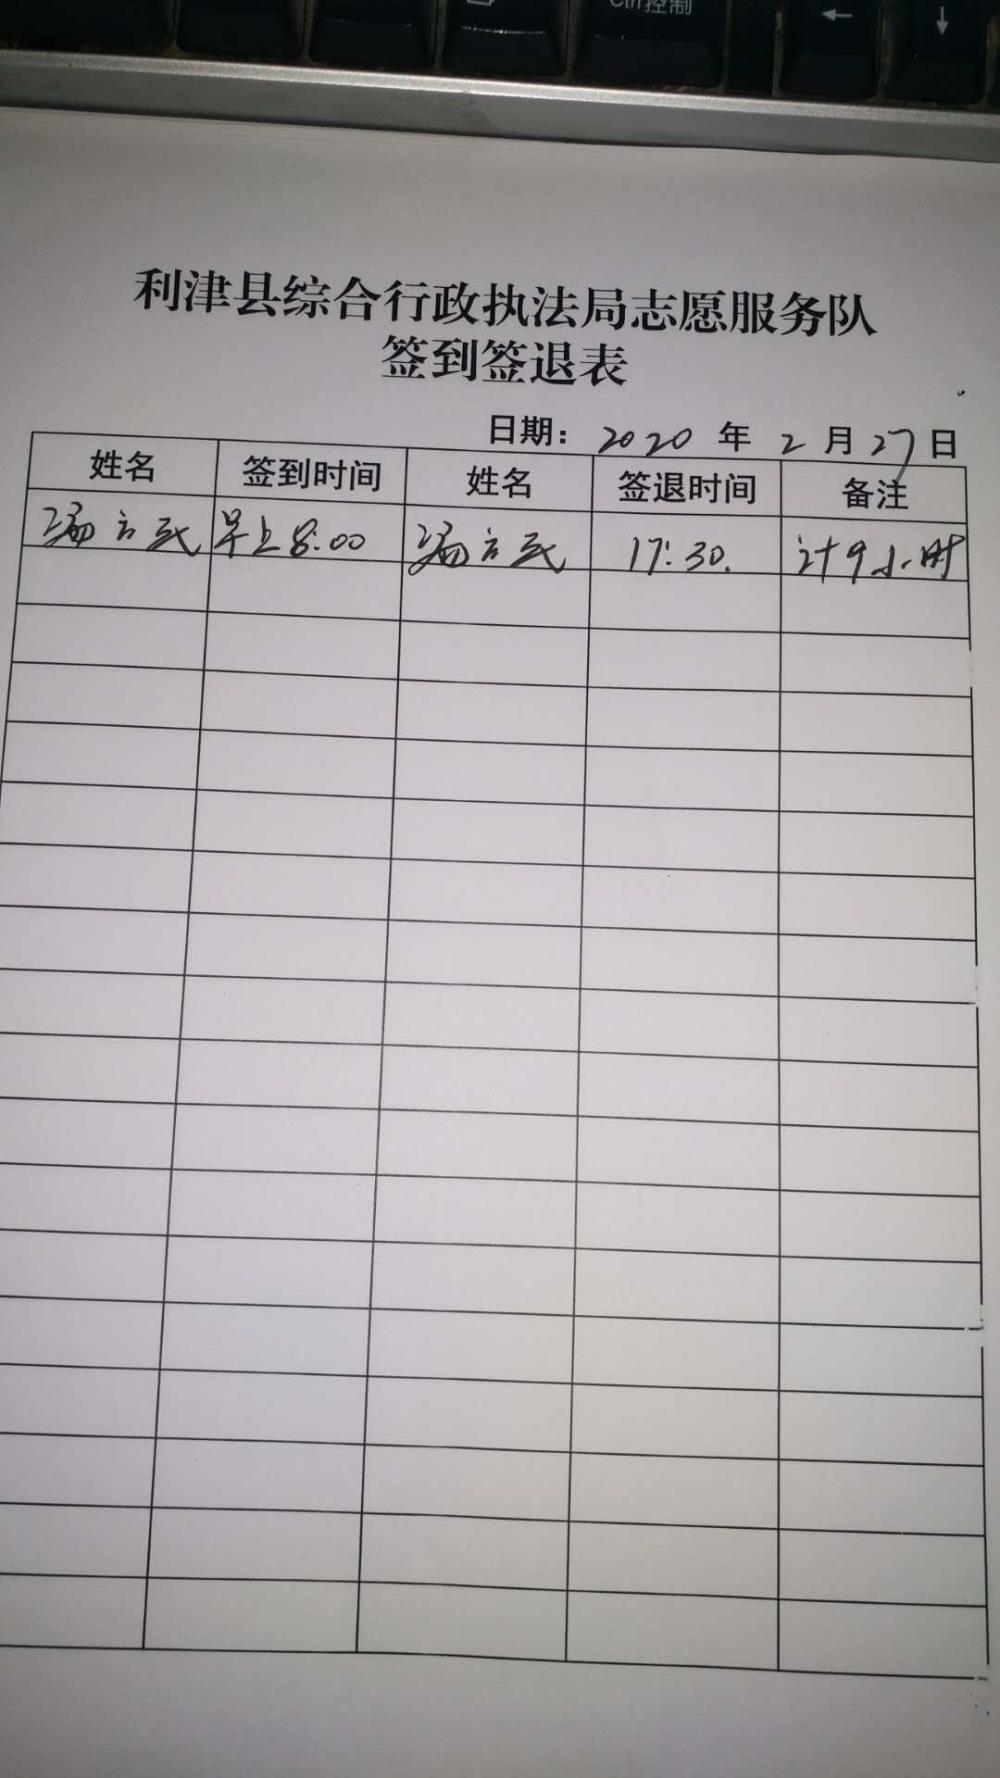 Ctrl控制
←
↓
利津县综合行政执法局志愿服务队
签到签退表
日期：2020 年 2 月 27 日
姓名 签到时间 姓名 签退时间 备注
早上8:00 17:30. 计9小时